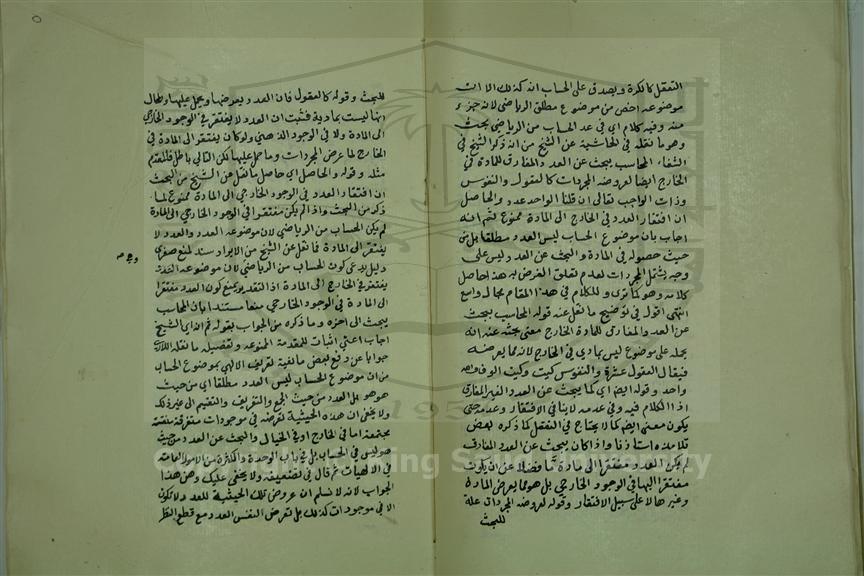 التعقل كالكرة ويصدق على الحساب انه كذلك الا ان
موضوعه اخص من موضوع مطلق الرياضى لانه جزء
منه وفيه كلام اي في عد الحساب من الرياضى بحث
وهو ما نقله في الحاشية عن الشيخ من انه ذكر الشيخ في
الشفاء المحاسب يبحث عن العدد والمفارق للمادة في
الخارج ايضا لعروضه المجردات كالعقول والنفوس
وذات الواجب تعالى ان قلنا الواحد عدد والحاصل
ان افتقار العدد في الخارج الى المادة ممنوع ثم انه
اجاب بان موضوع الحساب ليس العدد مطلقا بل من
حيث حصوله في المادة والبحث عن العدد ليس على
وجه يشتمل المجردات لعدم تعلق الغرض به هذا حاصل
كلامه وهو كما ترى وللكلام في هذا المقام مجال واسع
انتهى اقول في توضيح ما نقل عنه قوله المحاسب يبحث
عن العدد والمفارق للمادة الخارج معنى بحثه عنه انه
يحمله على موضوع ليس بمادي في الخارج لانه مما يعرضه
فيقال العقول عشرة والنفوس كيت وكيف الوف والله
واحد وقوله ايضا اي كما يبحث عن العدد الغير المفارق
اذ الكلام فيه وفي عدمه لا ينافي الافتقار وعدمه حتى
يكون معنى ايضا كما لا يحتاج في التعقل كما ذكره بعض
تلامذه استاذنا واذا كان يبحث عن العدد المفارق
لم يكن العدد مفتقرا الى مادة ما فضلا عن ان يكون
مفتقرا اليها في الوجود الخارجي بل هو مما يعرض المادة
وغيرها لا على سبيل الافتقار وقوله لعروضه المجردات علة
للبحث
للبحث وقوله كالعقول فان العدد يعرضها ويحمل عليها والحال
انها ليست بمادية فثبت ان العدد لا يفتقر في الوجود الخارجي
الى المادة ولا في الوجود الذهني ولو كان يفتقر الى المادة في
الخارج لما عرض المجردات وما حمل عليها لكن التالي باطل فالمقدم
مثله وقوله والحاصل اي حاصل ما نقل عن الشيخ من البحث
ان افتقار العدد في الوجود الخارجي الى المادة ممنوع لما
ذكر من البحث واذا لم يكن مفتقرا في الوجود الخارجي الى المادة
لم يكن الحساب من الرياضي لان موضوعه العدد والعدد لا
يفتقر الى المادة فما نقل عن الشيخ من الايراد سند لمنع صغرى
دليل يدعى كون الحساب من الرياضى لان موضوعه العدد
يفتقر في الخارج الى المادة اذ التقدير يمنع كون العدد مفتقرا
الى المادة في الوجود الخارجي منعا مستندا بان المحاسب
يبحث الى اخره وما ذكره من الجواب بقوله ثم انه اي الشيخ
اجاب اعني اثبات للمقدمة الممنوعة وتفصيله ما نقله
جوابا عن دفع بعض مانعية تعريف الالهي بموضوع الحساب
من ان موضوع الحساب ليس العدد مطلقا اي من حيث
هو هو بل العدد من حيث الجمع والتفريق والتقسيم الى غير ذلك
ولا يخفى ان هذه الحيثية تعرضه في موجودات متفرقة
مجتمعة اما في الخارج او في الخيال والبحث عن العدد من حيث
هو ليس في الحساب بل في باب الوحدة والكثرة من الامور العامة
في الالهيات ثم قال في تضعيفه ولا يخفى عليك وهن هذا
الجواب لانه لا نسلم ان عروض تلك الحيثية للعدد لا تكون
الا في موجودات كذلك بل تعرض لنفس العدد مع قطع النظر